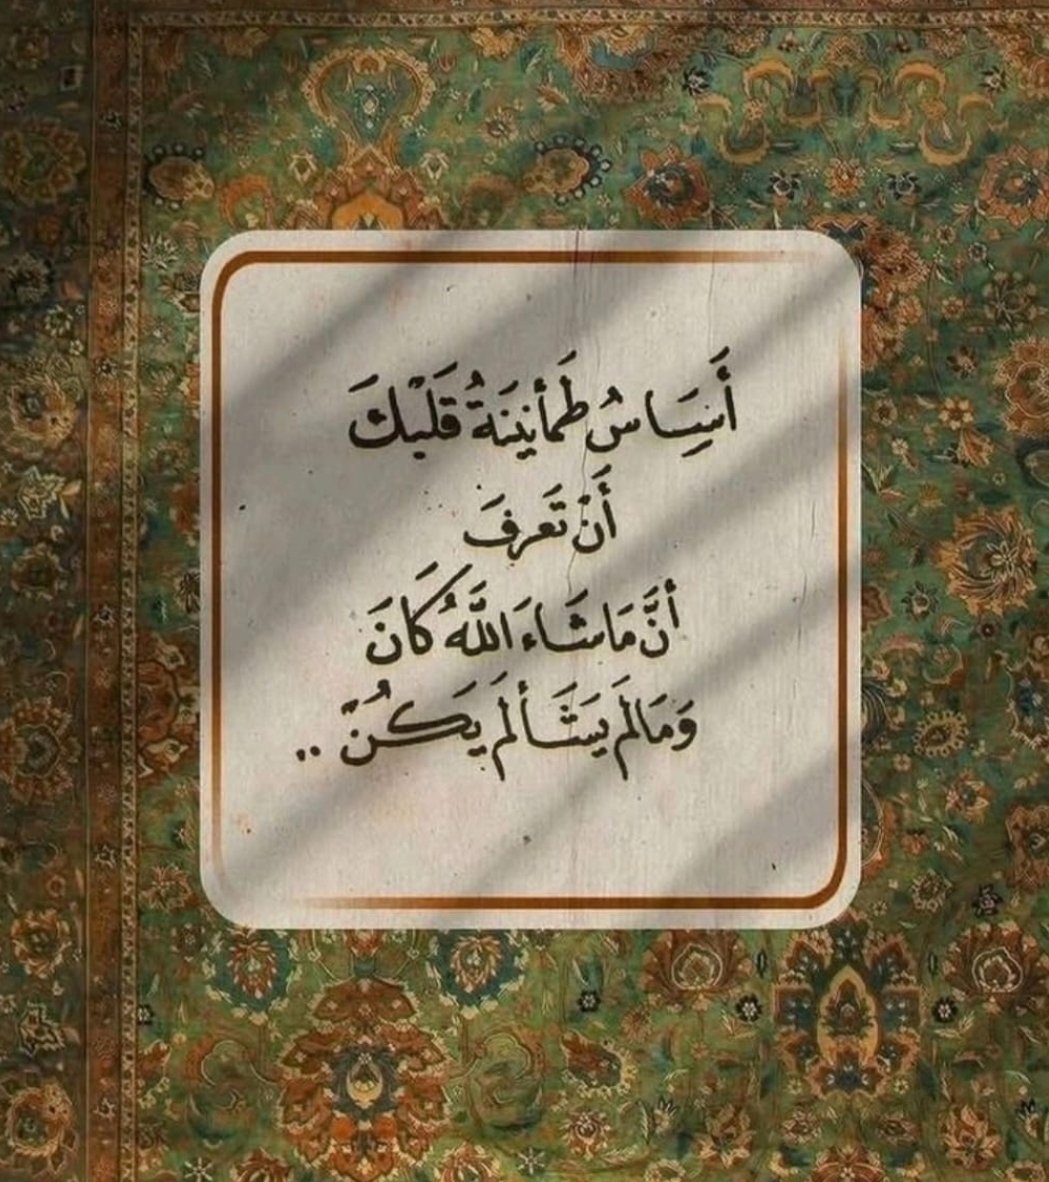 أَسَِاسُ طَمأنِينَةُ قَلبْكَ
أَنْ تَعرفَ
أنَّ مَا شَاءَ اللَّهُ كَانَ
وَمَا لَم يَشَأ لَم يَكُنْ ..